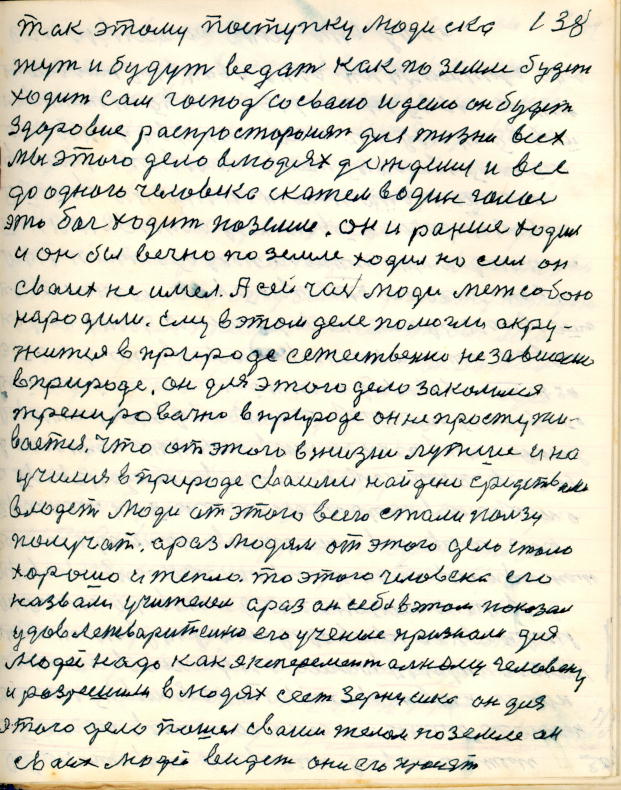 так этому поступку люди ска 138
жут и будут ведат как по земле будет
ходит сам господ со сваею идею он будет
Здоровие распросторонят для жизни всех
мы этого дело в людях дождемся и все
до одного человека скажем водин голос
это бог ходит поземле. он и раньше ходил
и он был вечно по земле ходил но сил он
сваих не имел. А сейчас люди меж собою
народили. ему в этом деле помогли окру-
жится в природе естественно независимо
в природе. он для этого дело закалился
тренировачно в природе он не простужи-
вается. что от этого в жизни лутше и на
учился в природе сваими найдено средствами
владет люди от этого всего стали ползу
получат. а раз людям от этого дело стало
хорошо и тепло. то этого человека его
назвали учителем а раз он себя в этом показал
удовлетварително его учение признали для
людей надо как эксперементалному человеку
и разрешили в людях сеет зернушка он для
этого дело пошел сваим телом по земле он
сваих людей видет они его просят